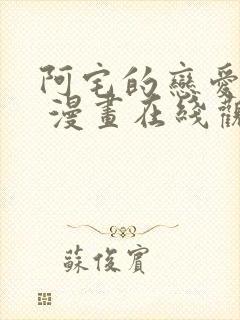 阿宅的戀愛
漫畫在綫觀
蘇俊賓